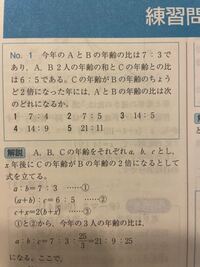 練習問
No. 1 今年のAとBの年齢の比は7：3で
あり，A、B2人の年齢の和とCの年齢との比
は6：5である。Cの年齢がBの年齢のちょう
ど2倍になった年には，AとBの年齢の比は次
のどれになるか。
1 7：4 2 7：5 3 14：5
4 14：9 5 21：11
解説 A，B，Cの年齢をそれぞれa，b，cとし，
x年後にCの年齢がBの年齢の2倍になるとして
式を立てる。
a：b＝7：3 ……①
(a+b)：c＝6：5 ……②
c+x＝2(b+x) ……③
①と②から，今年の3人の年齢の比は，
a：b：c＝7：3：25/3＝21：9：25
になる。ここで，